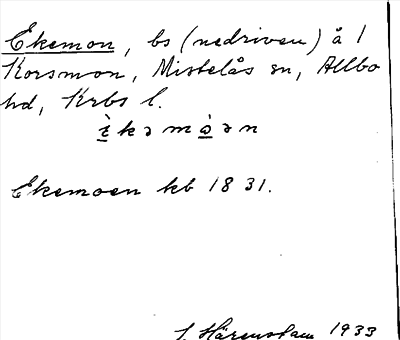 Ekemon, bs (nedriven) å 1
Korsmon, Mistelås sn, Allbo
hd, Krbs l.
è̱kəmò̱ən
Ekemoen kb 1831.
J. Härenstam 1933